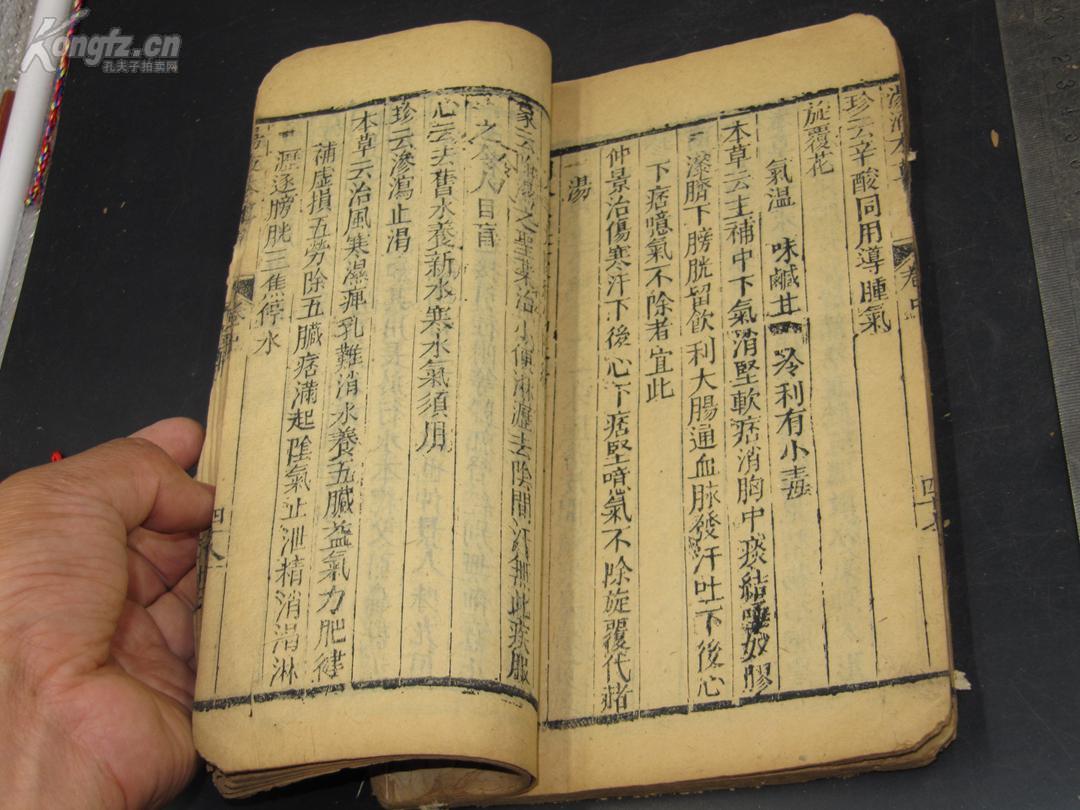 Kongfz.cn
孔夫子拍卖网
湯液本草
卷中
四十七
珍云辛酸同用導腫氣
旋覆花
氣温 味鹹甘 冷利有小毒
本草云主補中下氣消堅軟痞消胸中痰結唾如膠
漆臍下膀胱留飲利大腸通血脉發汗吐下後心
下痞噫氣不除者宜此
仲景治傷寒汗下後心下痞堅噫氣不除旋覆代赭
湯
家云 之聖藥治小便淋瀝去陰間汗無此疾服
之令人目盲
心云去舊水養新水寒水氣須用
珍云滲瀉止渴
本草云治風寒濕痺乳難消水養五臟益氣力肥健
補虚損五勞除五臟痞滿起陰氣止泄精消渴淋
瀝逐膀胱三焦停水
四十八